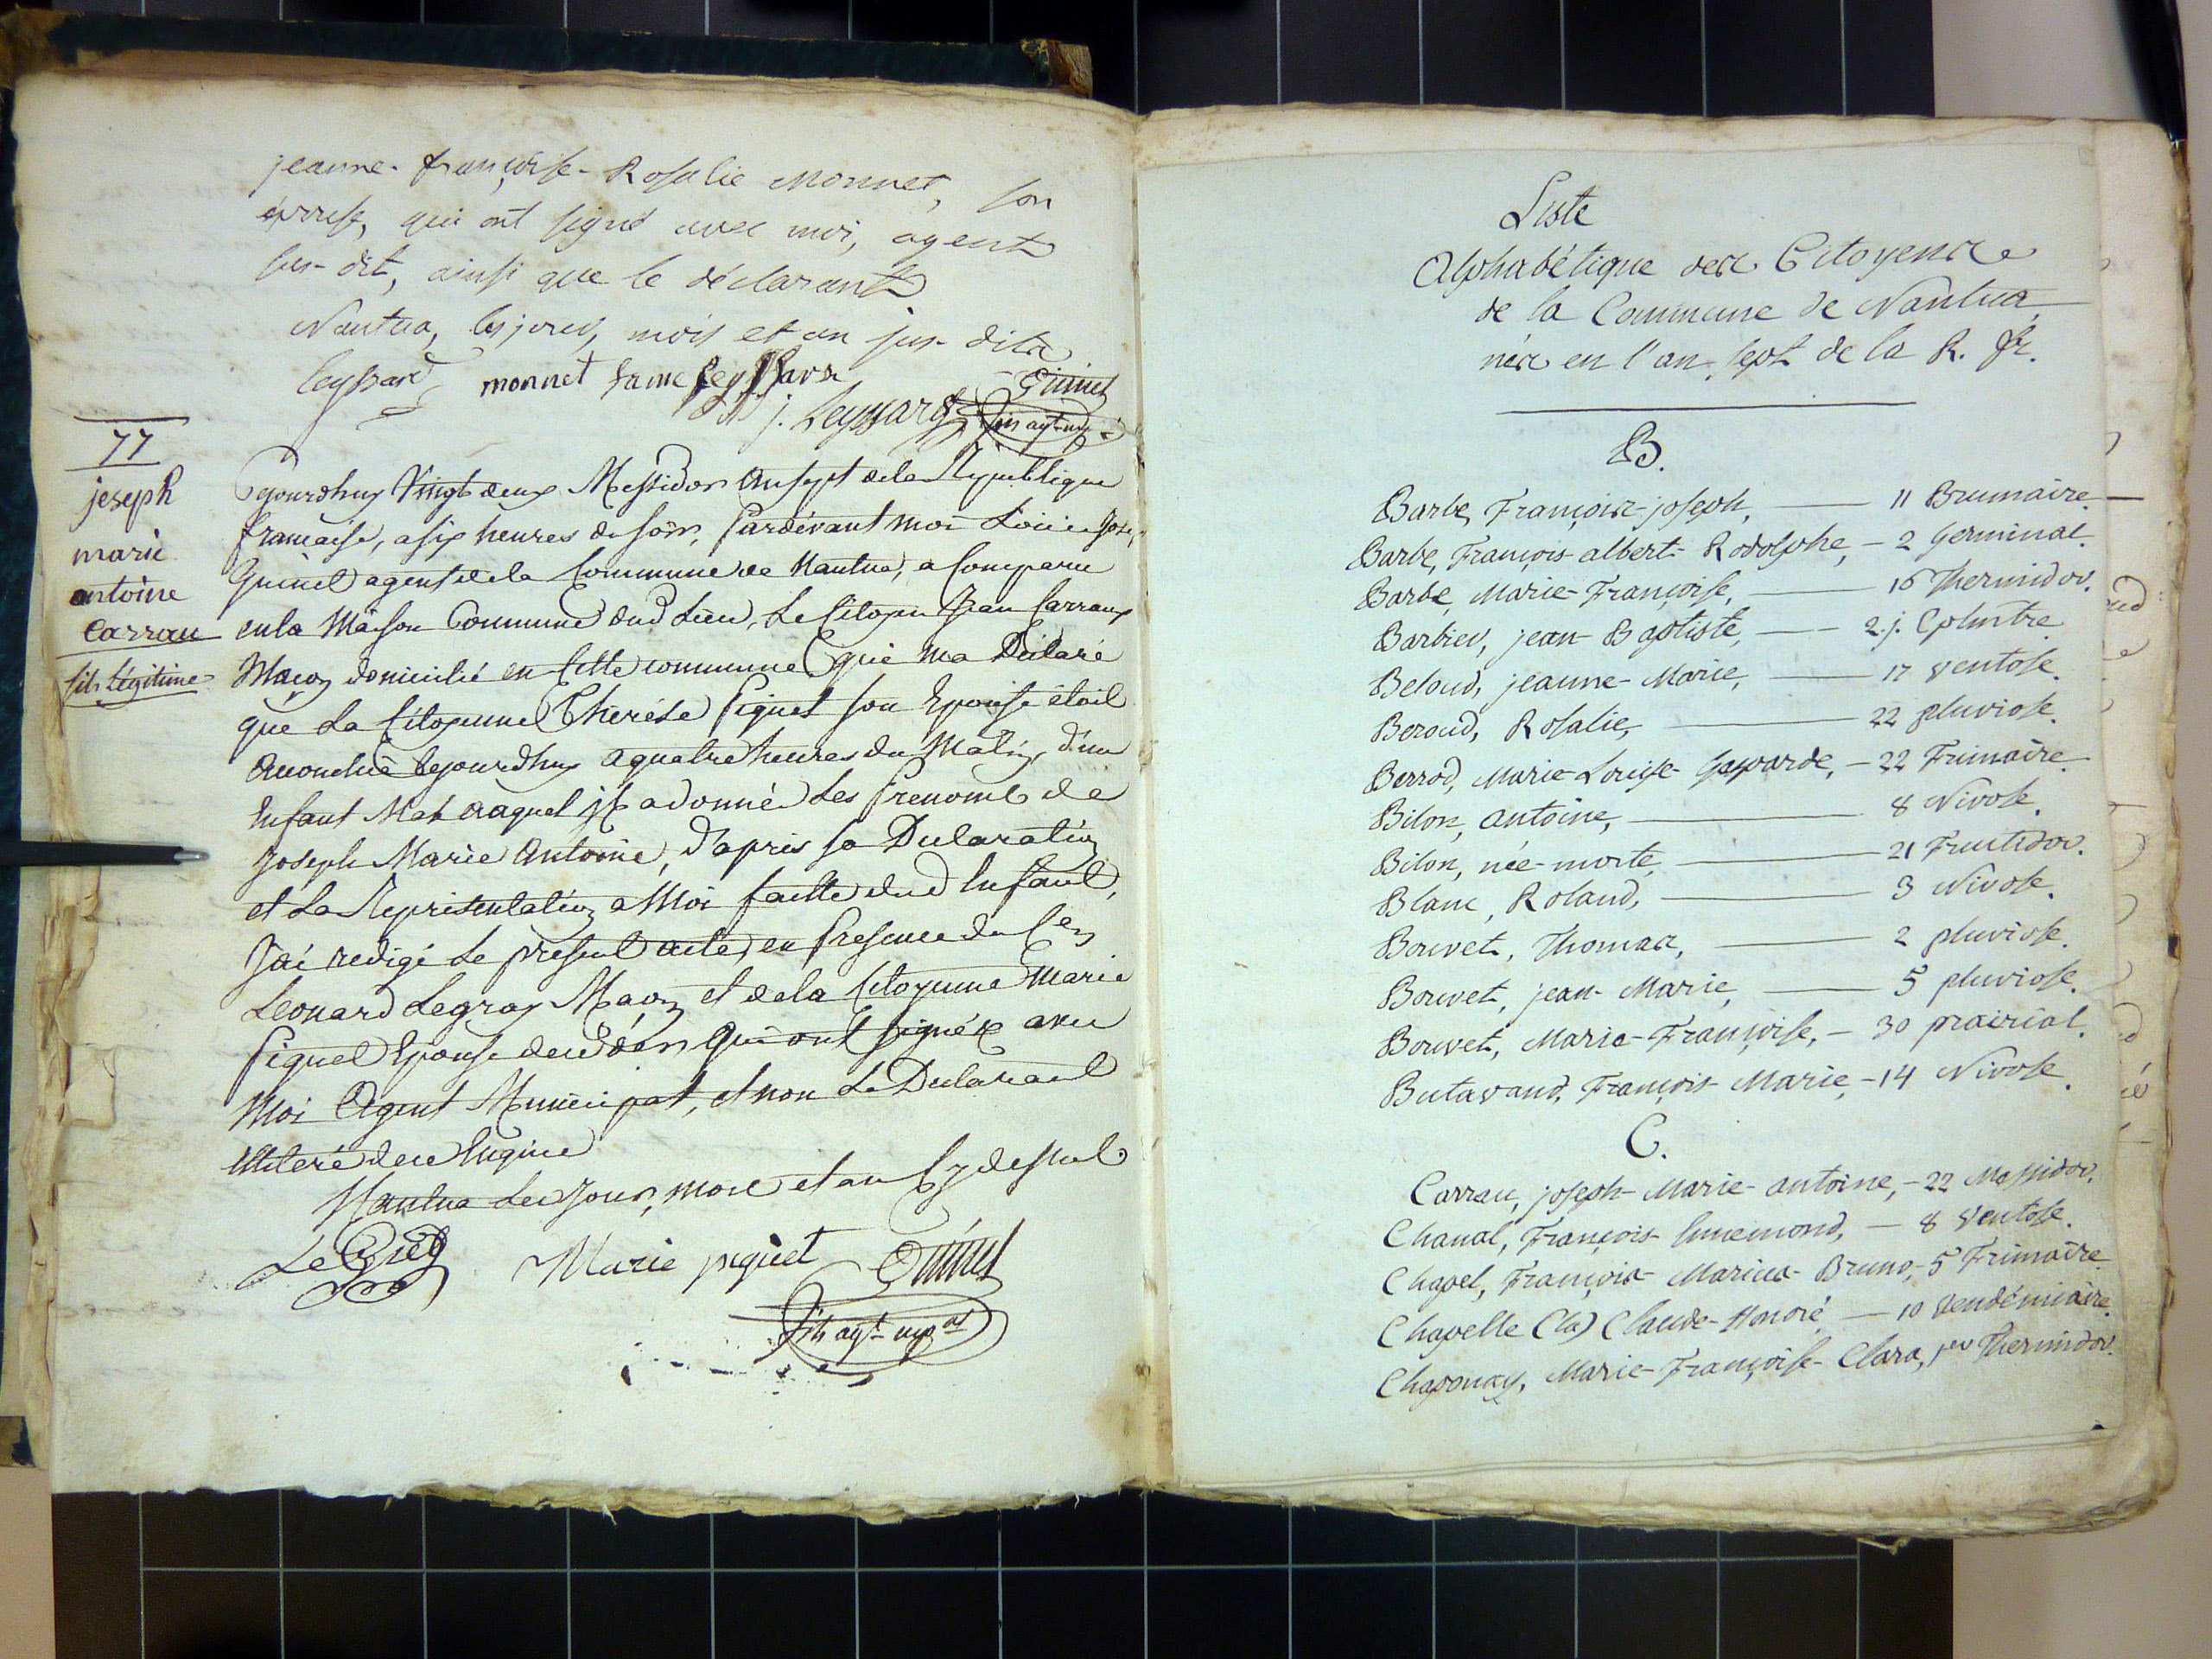 jeanne-françoise-Rosalie Monnet, son
épouse, qui ont signé avec moi, agent
sus-dit, ainsi que le déclarant
Nantua, les jours, mois et an sus-dits
Leyssard monnet fame Leyssard
j. Leyssard Guinet
fils agt. mpal
77
joseph
marie
antoine
Carrau
fils légitime
Cejourdhuy Vingt deux Messidor an sept de la République
francaise, a six heures du soir, Pardevant moi Louis Jose
Guinet agent de la Commune de Nantua, a Comparu
en la Maison Commune dud Lieu, Le Citoyen Jean Carraux
Maçon domicilié en Cette commune qui ma Déclaré
que La Citoyenne Thérése Piquet son Epouse étoit
accouchée Cejourdhuy a quatre heures du Matin, d'un
Enfant Mal auquel il a donné Les Prenoms de
Joseph Marie Antoine, d'apres sa Declaration
et La Representation a Moi faitte dud Enfant,
J'ai redigé Le present acte, en Presence du Cen
Leonard Legros Maçon et de la Citoyenne Marie
Piquet Epouse qui ont signé avec
Moi Agent Municipal, et non Le Declarant
Illiteré de ce Enquis
Nantua Les Jours, mois et an Cy dessus
Marie piquet Guinet
fils agt mpal
Liste
Alphabétique des Citoyens
de la Commune de Nantua,
nés en l'an sept de la R. fr.
B.
Barbe, François-joseph, — 11 Brumaire.
Barbe, François-albert-Rodolphe, — 2 Germinal.
Barbe, Marie-Françoise, — 16 Thermidor.
Barbier, jean-Baptiste, — 2.j. Complre
Beloud, jeanne-Marie, — 17 Ventose.
Beroud, Rosalie, — 22 pluviose.
Berrod, Marie-Louise-Gasparde, — 22 Frimaire.
Bilon, antoine, — 8 Nivose.
Bilon, née-morte, — 21 Fructidor.
Blanc, Roland, — 3 Nivose.
Bouvet, Thomas, — 2 pluviose.
Bouvet, jean-Marie, — 5 pluviose.
Bouvet, Marie-Françoise, — 30 prairial.
Butavand, François-Marie, — 14 Nivose.
C.
Carrau, joseph-Marie-antoine, — 22 Messidor.
Chanal, François-Ennemond, — 8 Ventose.
Chapel, François-Marius-Bruno, — 5 Frimaire.
Chapelle (la) Claude-Honoré, — 10 Vendémiaire.
Chaponay, Marie-Françoise-Clara, 1er Thermidor.